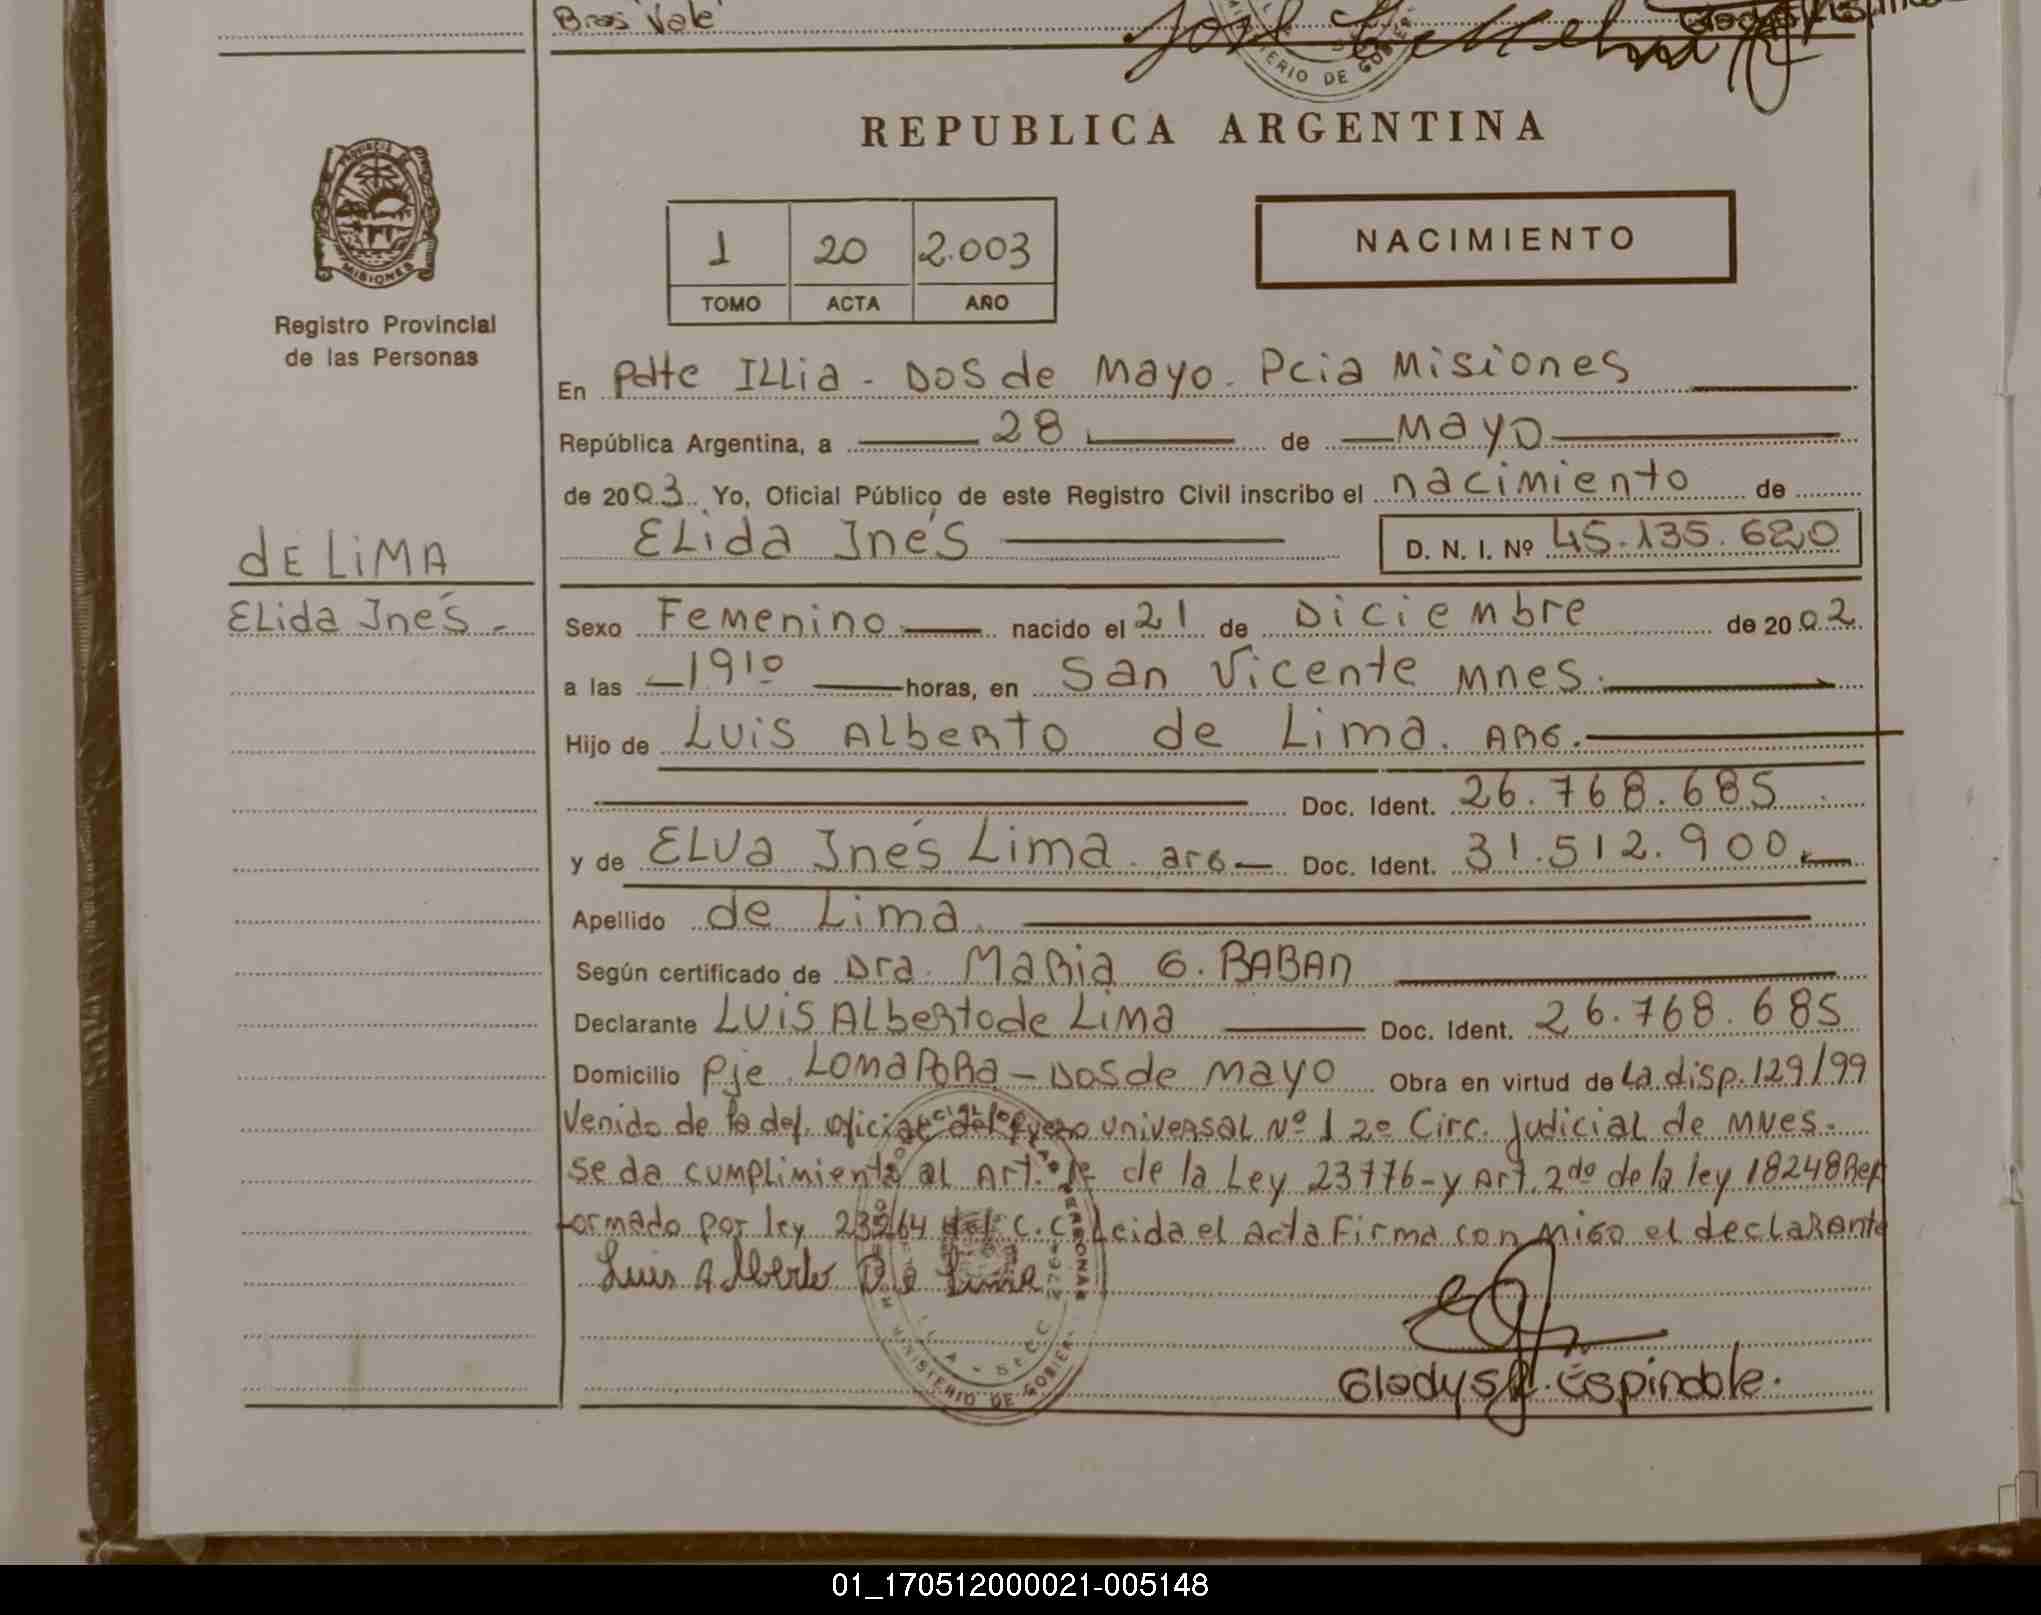 Bras Vale
REPUBLICA ARGENTINA
PROVINCIA DE
MISIONES
Registro Provincial
de las Personas
1 20 2.003
TOMO ACTA AÑO
NACIMIENTO
En Pdte ILLia - DOS de Mayo. Pcia Misiones
República Argentina, a 28 de Mayo
de 2003 Yo, Oficial Público de este Registro Civil inscribo el nacimiento de
ELida Inés D. N. I. Nº 45.135.620
dE LiMA
ELida Inés -
Sexo Femenino nacido el 21 de Diciembre de 2002
a las 19 10 horas, en San Vicente Mnes.
Hijo de Luis ALberto de Lima. ARG.
Doc. Ident. 26.768.685
y de ELva Inés Lima. arG Doc. Ident. 31.512.900
Apellido de Lima.
Según certificado de Dra. MaRia G. RABAn
Declarante LUiS ALbertode LiMa Doc. Ident. 26.768.685
Domicilio Pje LOMaPORa - DOSde Mayo Obra en virtud de La disp. 129/99
Venido de la def. oficial del fuero universal Nº 1 2º Circ. Judicial de MNes.
se da cumplimiento al Art. de la Ley 23776 - y Art. 2do de la ley 18248 Ref
formado por ley 23264 del C.C. Leida el acta Firma con MiGo el declaRante
Luis Alberto De Lima
MINISTERIO DE GOBIER
Gladys R. Espindola.
01_170512000021-005148